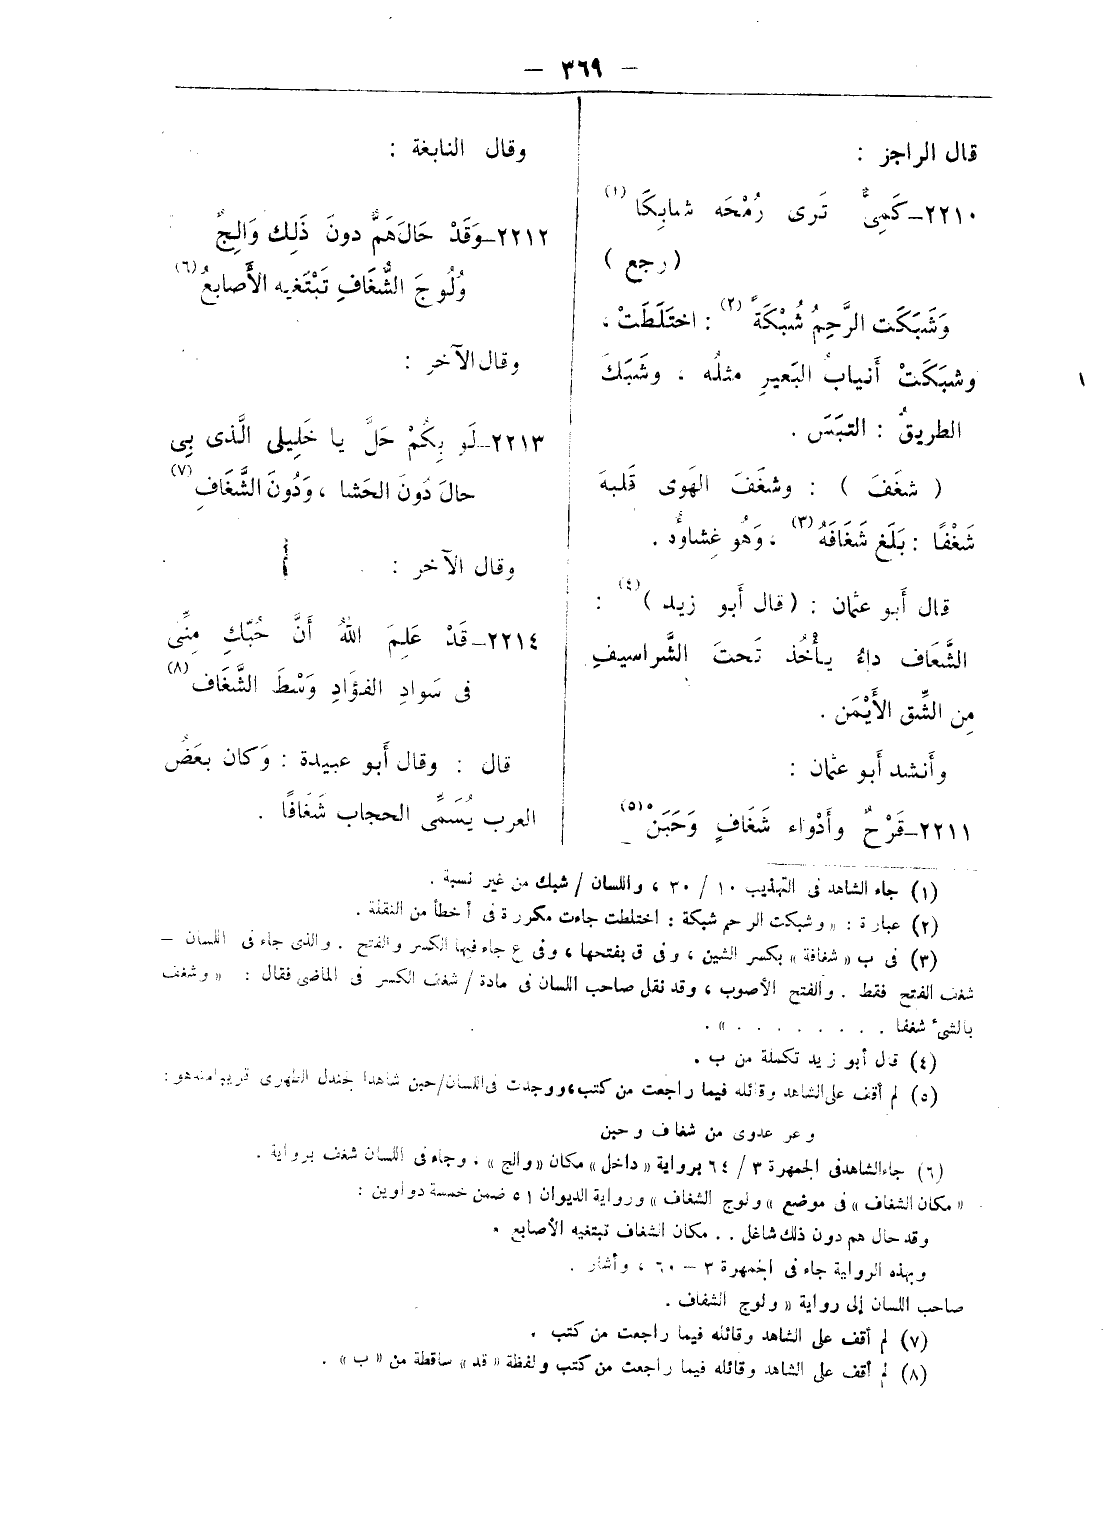 — ٣٦٩ —
قال الراجز :
٢٢١٠ــ كَمِىٌّ تَرى رُمْحَه شابِكَا (١)
( رجع )
وَشَبَكَت الرَّحِمُ شُبْكَةً (٢) : اختَلَطَتْ ،
وشبَكَتْ أَنيابُ البَعيرِ مثلُه ، وشَبَكَ
الطريقُ : التبَسَ .
( شغَفَ ) : وشغَفَ الهَوى قَلبهَ
شَغْفًا : بَلَغ شَغَافَهُ (٣) ، وَهُو غِشاوُه .
قال أَبو عثمان : ( قال أَبو زيد ) (٤) :
الشَّغَاف داءُ يأْخُذ تَحتَ الشَّراسيفِ
مِن الشِّق الأَيْمَن .
وأَنشد أَبو عثمان :
٢٢١١ــ قَرْحٌ وأَدْواء شَغَافٍ وَحَبَنْ (٥)
وقال النابغة :
٢٢١٢ــ وَقَدْ حَالَ هَمٌّ دونَ ذَلِك وَالِجٌ
وُلُوجَ الشَّغَافِ تَبْتَغيه الأَصابعُ (٦)
وقال الآخر :
٢٢١٣ــ لَو بِكُمْ حَلَّ يا خَلِيلى الَّذى بِى
حالَ دُونَ الحَشا ، وَدُونَ الشَّغَافِ (٧)
وقال الآخر :
٢٢١٤ــ قَدْ عَلِمَ اللهُ أَنَّ حُبّكِ مِنِّى
فى سَوادِ الفؤَادِ وَسْطَ الشَّغَاف (٨)
قال : وقال أَبو عبيدة : وَكان بعَضُ
العرب يُسَمِّى الحجاب شَغَافًا .
(١) جاء الشاهد فى التهذيب ١٠ / ٣٠ ، واللسان / شبك من غير نسبة .
(٢) عبارة : « وشبكت الرحم شبكة : اختلطت جاءت مكررة فى أ خطأ من النقلة .
(٣) فى ب « شغافة » بكسر الشين ، وفى ق بفتحها ، وفى ع جاء فيها الكسر والفتح . والذى جاء فى اللسان –
شغف الفتح فقط . والفتح الأصوب ، وقد نقل صاحب اللسان فى مادة / شغف الكسر فى الماضى فقال : « وشغف
بالشىء شغفا . . . . . . . . » .
(٤) قال أبو زيد تكملة من ب .
(٥) لم أقف على الشاهد وقائله فيما راجعت من كتب ، ووجدت فى اللسان/حبن شاهدا لجندل الطهرى قريبا منه هو :
وعر عدوى من شغاف وحبن
(٦) جاء الشاهد فى الجمهرة ٣ / ٦٤ برواية « داخل » مكان « والج » ، وجاء فى اللسان شغف برواية .
« مكان الشغاف » فى موضع « ولوج الشغاف » ورواية الديوان ٥١ ضمن خمسة دواوين :
وقد حال هم دون ذلك شاغل . . مكان الشغاف تبتغيه الأصابع .
وبهذه الرواية جاء فى الجمهرة ٣ – ٦٠ ، وأشار .
صاحب اللسان إلى رواية « ولوج الشغاف .
(٧) لم أقف على الشاهد وقائله فيما راجعت من كتب .
(٨) لم أقف على الشاهد وقائله فيما راجعت من كتب ولفظة « قد » ساقطة من « ب » .